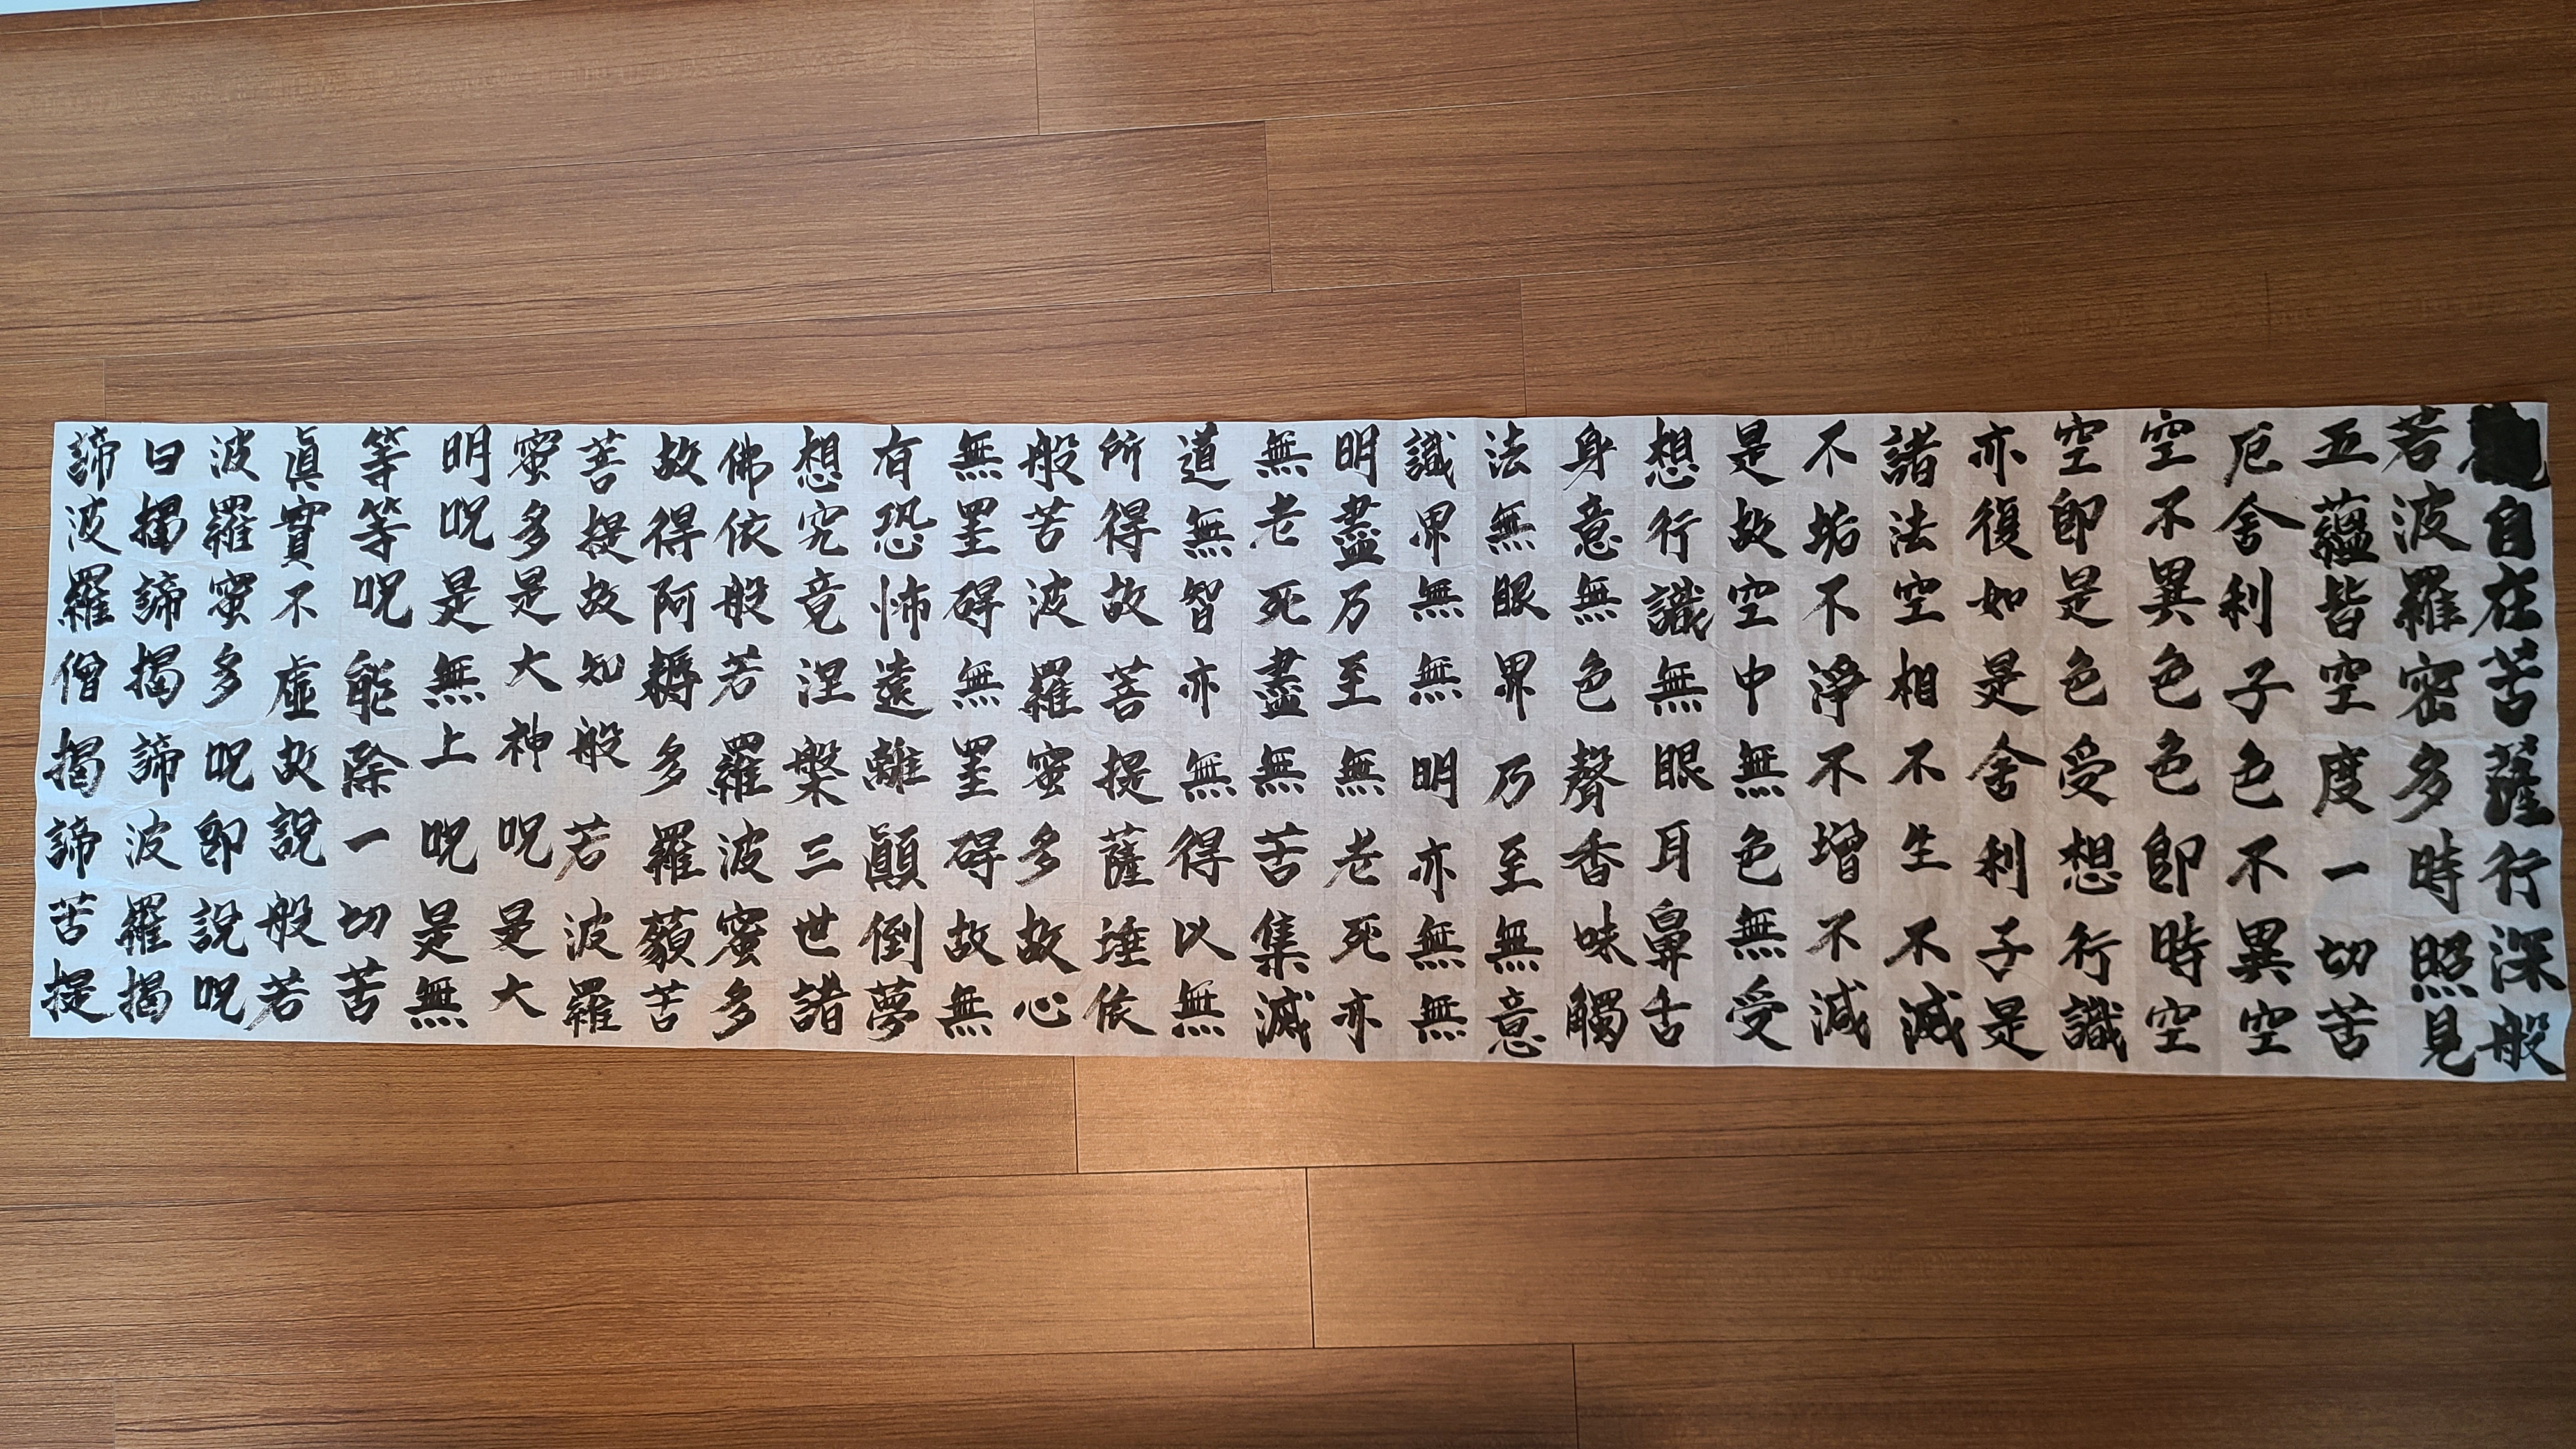 自在苦薩行深般
若波羅密多時照見
五蘊皆空度一切苦
厄舍利子色不異空
空不異色色即時空
空即是色受想行識
亦復如是舍利子是
諸法空相不生不滅
不垢不淨不增不減
是故空中無色無受
想行識無眼耳鼻舌
身意無色聲香味觸
法無眼界乃至無意
識界無無明亦無無
明盡乃至無老死亦
無老死盡無苦集滅
道無智亦無得以無
所得故菩提薩埵依
般苦波羅蜜多故心
無罣碍無罣碍故無
有恐怖遠離顚倒夢
想究竟涅槃三世諸
佛依般若羅波蜜多
故得阿耨多羅藐苦
菩提故知般若波羅
蜜多是大神呪是大
明呪是無上呪是無
等等呪能除一切苦
眞實不虛故說般若
波羅蜜多呪即說呪
曰揭諦揭諦波羅揭
諦波羅僧揭諦苦提